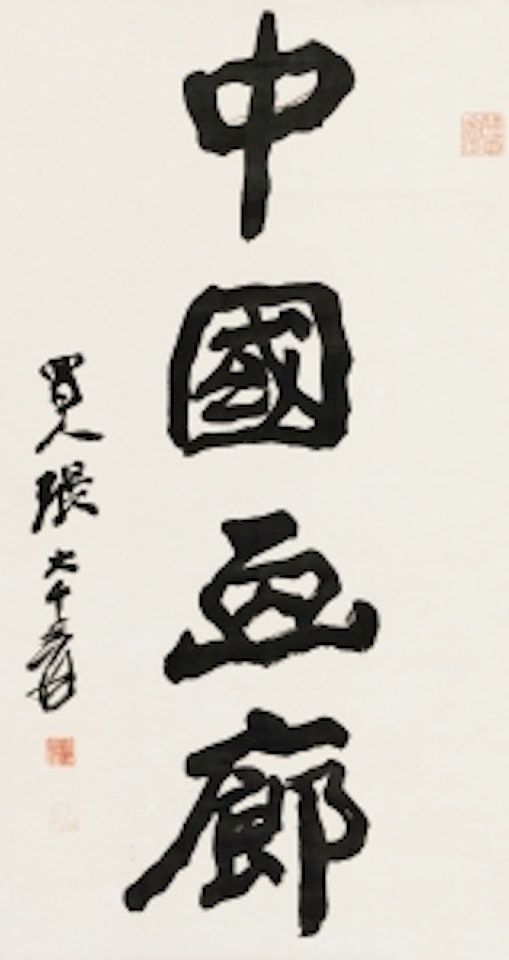 中國画廊
蜀人張大千爰